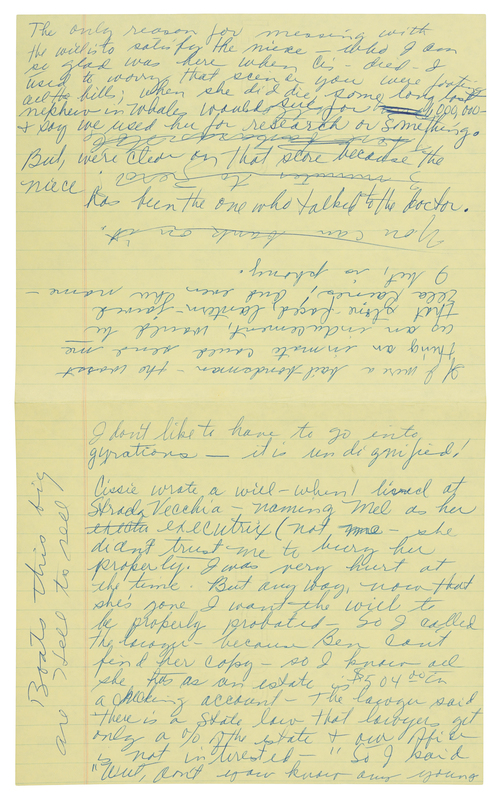 The only reason for messing with
the will is to satisfy the niece – who I am
so glad was here when Cis – died – I
used to worry that since you were footin
all the bills; when she did die, some long lost
nephew in Wales would sue for 1,000,000–
+ say we used her for research or something.
But, were clear on that score because the
niece
has been the one who talked to the doctor.
You can bank on it.
If I were a bail-bondsman – the worst
thing an inmate could send me
as an inducement, would be
that stoic-faced, lantern-jawed
Ella Raines; and even her name –
I bet, is phony.
I don't like to have to go into
gyrations – it is undignified!
Cissie wrote a will – when I lived at
Strada Vecchia – naming Mel as her
executrix (not me – she
didn't trust me to bury her
properly. I was very hurt at
the time. But any way, now that
she's gone I want the will to
be properly probated – So I called
the lawyer – because Ben can't
find her copy – so I know all
she has as an estate is $504.00 in
a checking account – The lawyer said
there is a State law that lawyers get
only a % of the estate + our office
is not interested – " So I said
"Well, don't you know any young
Boats this big
are Hell to sell!